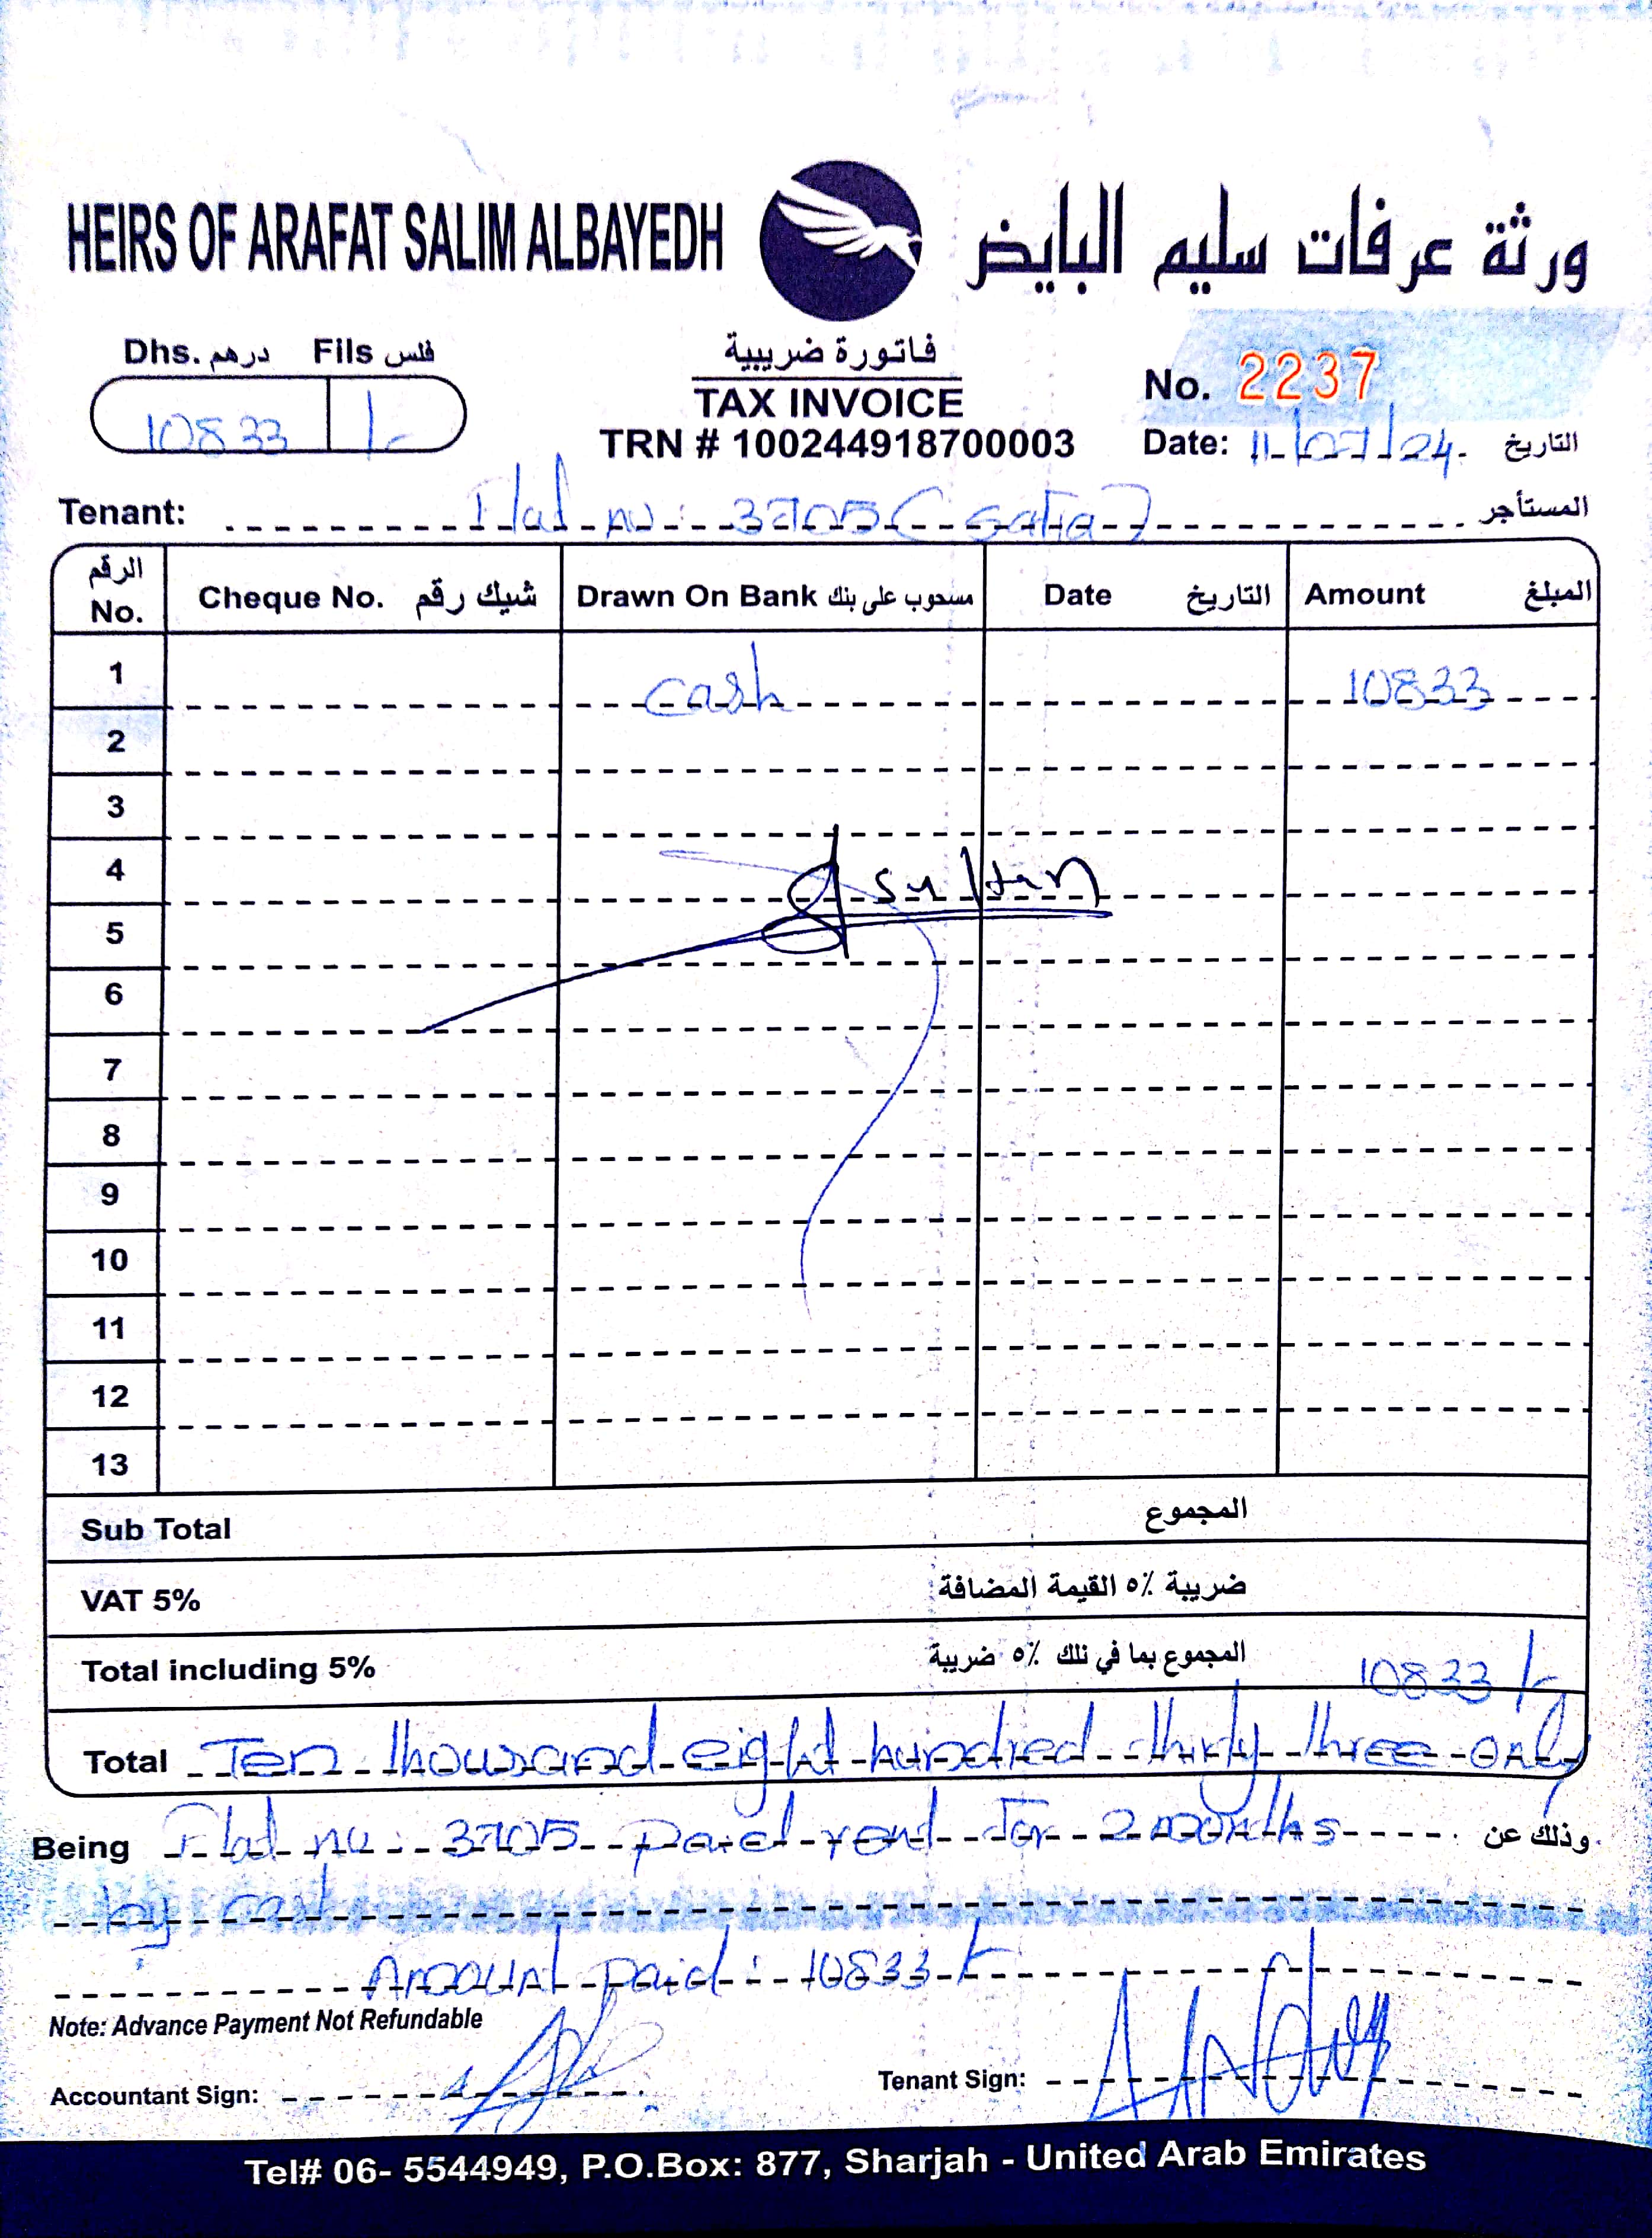 HEIRS OF ARAFAT SALIM ALBAYEDH ورثة عرفات سليم البايض
Dhs. درهم Fils فلس
10833 /-
فاتورة ضريبية
TAX INVOICE
TRN # 100244918700003
No. 2237
Date: 11/07/24. التاريخ
Tenant: Flat no: 3705 (Safia) المستأجر
الرقم No. Cheque No. شيك رقم Drawn On Bank مسحوب على بنك Date التاريخ Amount المبلغ
1 cash 10833
2
3
4 sultan
5
6
7
8
9
10
11
12
13
Sub Total المجموع
VAT 5% ضريبة ٥٪ القيمة المضافة
Total including 5% المجموع بما في ذلك ٥٪ ضريبة 10833/-
Total Ten thousand eight hundred thirty three only
Being Flat no: 3705 paid rent for 2 months وذلك عن
by cash
Amount paid: 10833/-
Note: Advance Payment Not Refundable
Accountant Sign: Tenant Sign:
Tel# 06- 5544949, P.O.Box: 877, Sharjah - United Arab Emirates